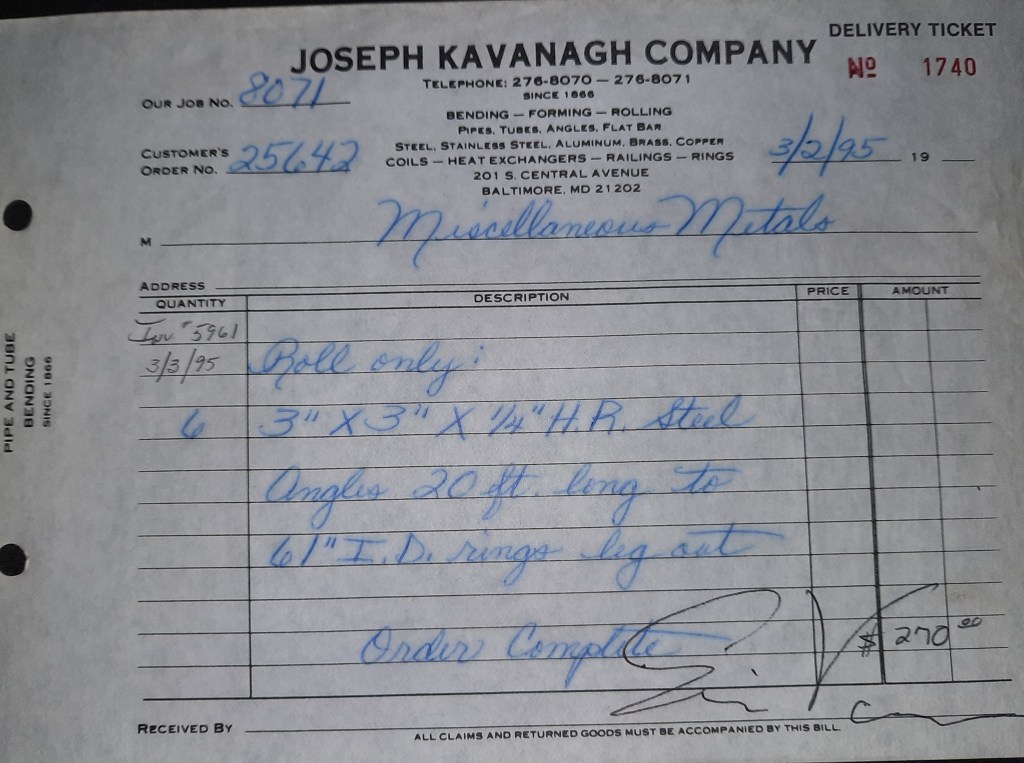 DELIVERY TICKET
JOSEPH KAVANAGH COMPANY
Nº 1740
TELEPHONE: 276-8070 — 276-8071
SINCE 1866
OUR JOB NO. 8071
BENDING — FORMING — ROLLING
PIPES, TUBES, ANGLES, FLAT BAR
STEEL, STAINLESS STEEL, ALUMINUM, BRASS, COPPER
CUSTOMER'S
ORDER NO. 25642
COILS — HEAT EXCHANGERS — RAILINGS — RINGS
3/2/95 19
201 S. CENTRAL AVENUE
BALTIMORE, MD 21202
M Miscellaneous Metals
ADDRESS
QUANTITY DESCRIPTION PRICE AMOUNT
Inv # 5961
3/3/95 Roll only:
6 3" X 3" X 1/4" H.R. Steel
Angles 20 ft. long to
61" I.D. rings leg out
Order Complete $ 270 00
RECEIVED BY
ALL CLAIMS AND RETURNED GOODS MUST BE ACCOMPANIED BY THIS BILL.
PIPE AND TUBE
BENDING
SINCE 1866